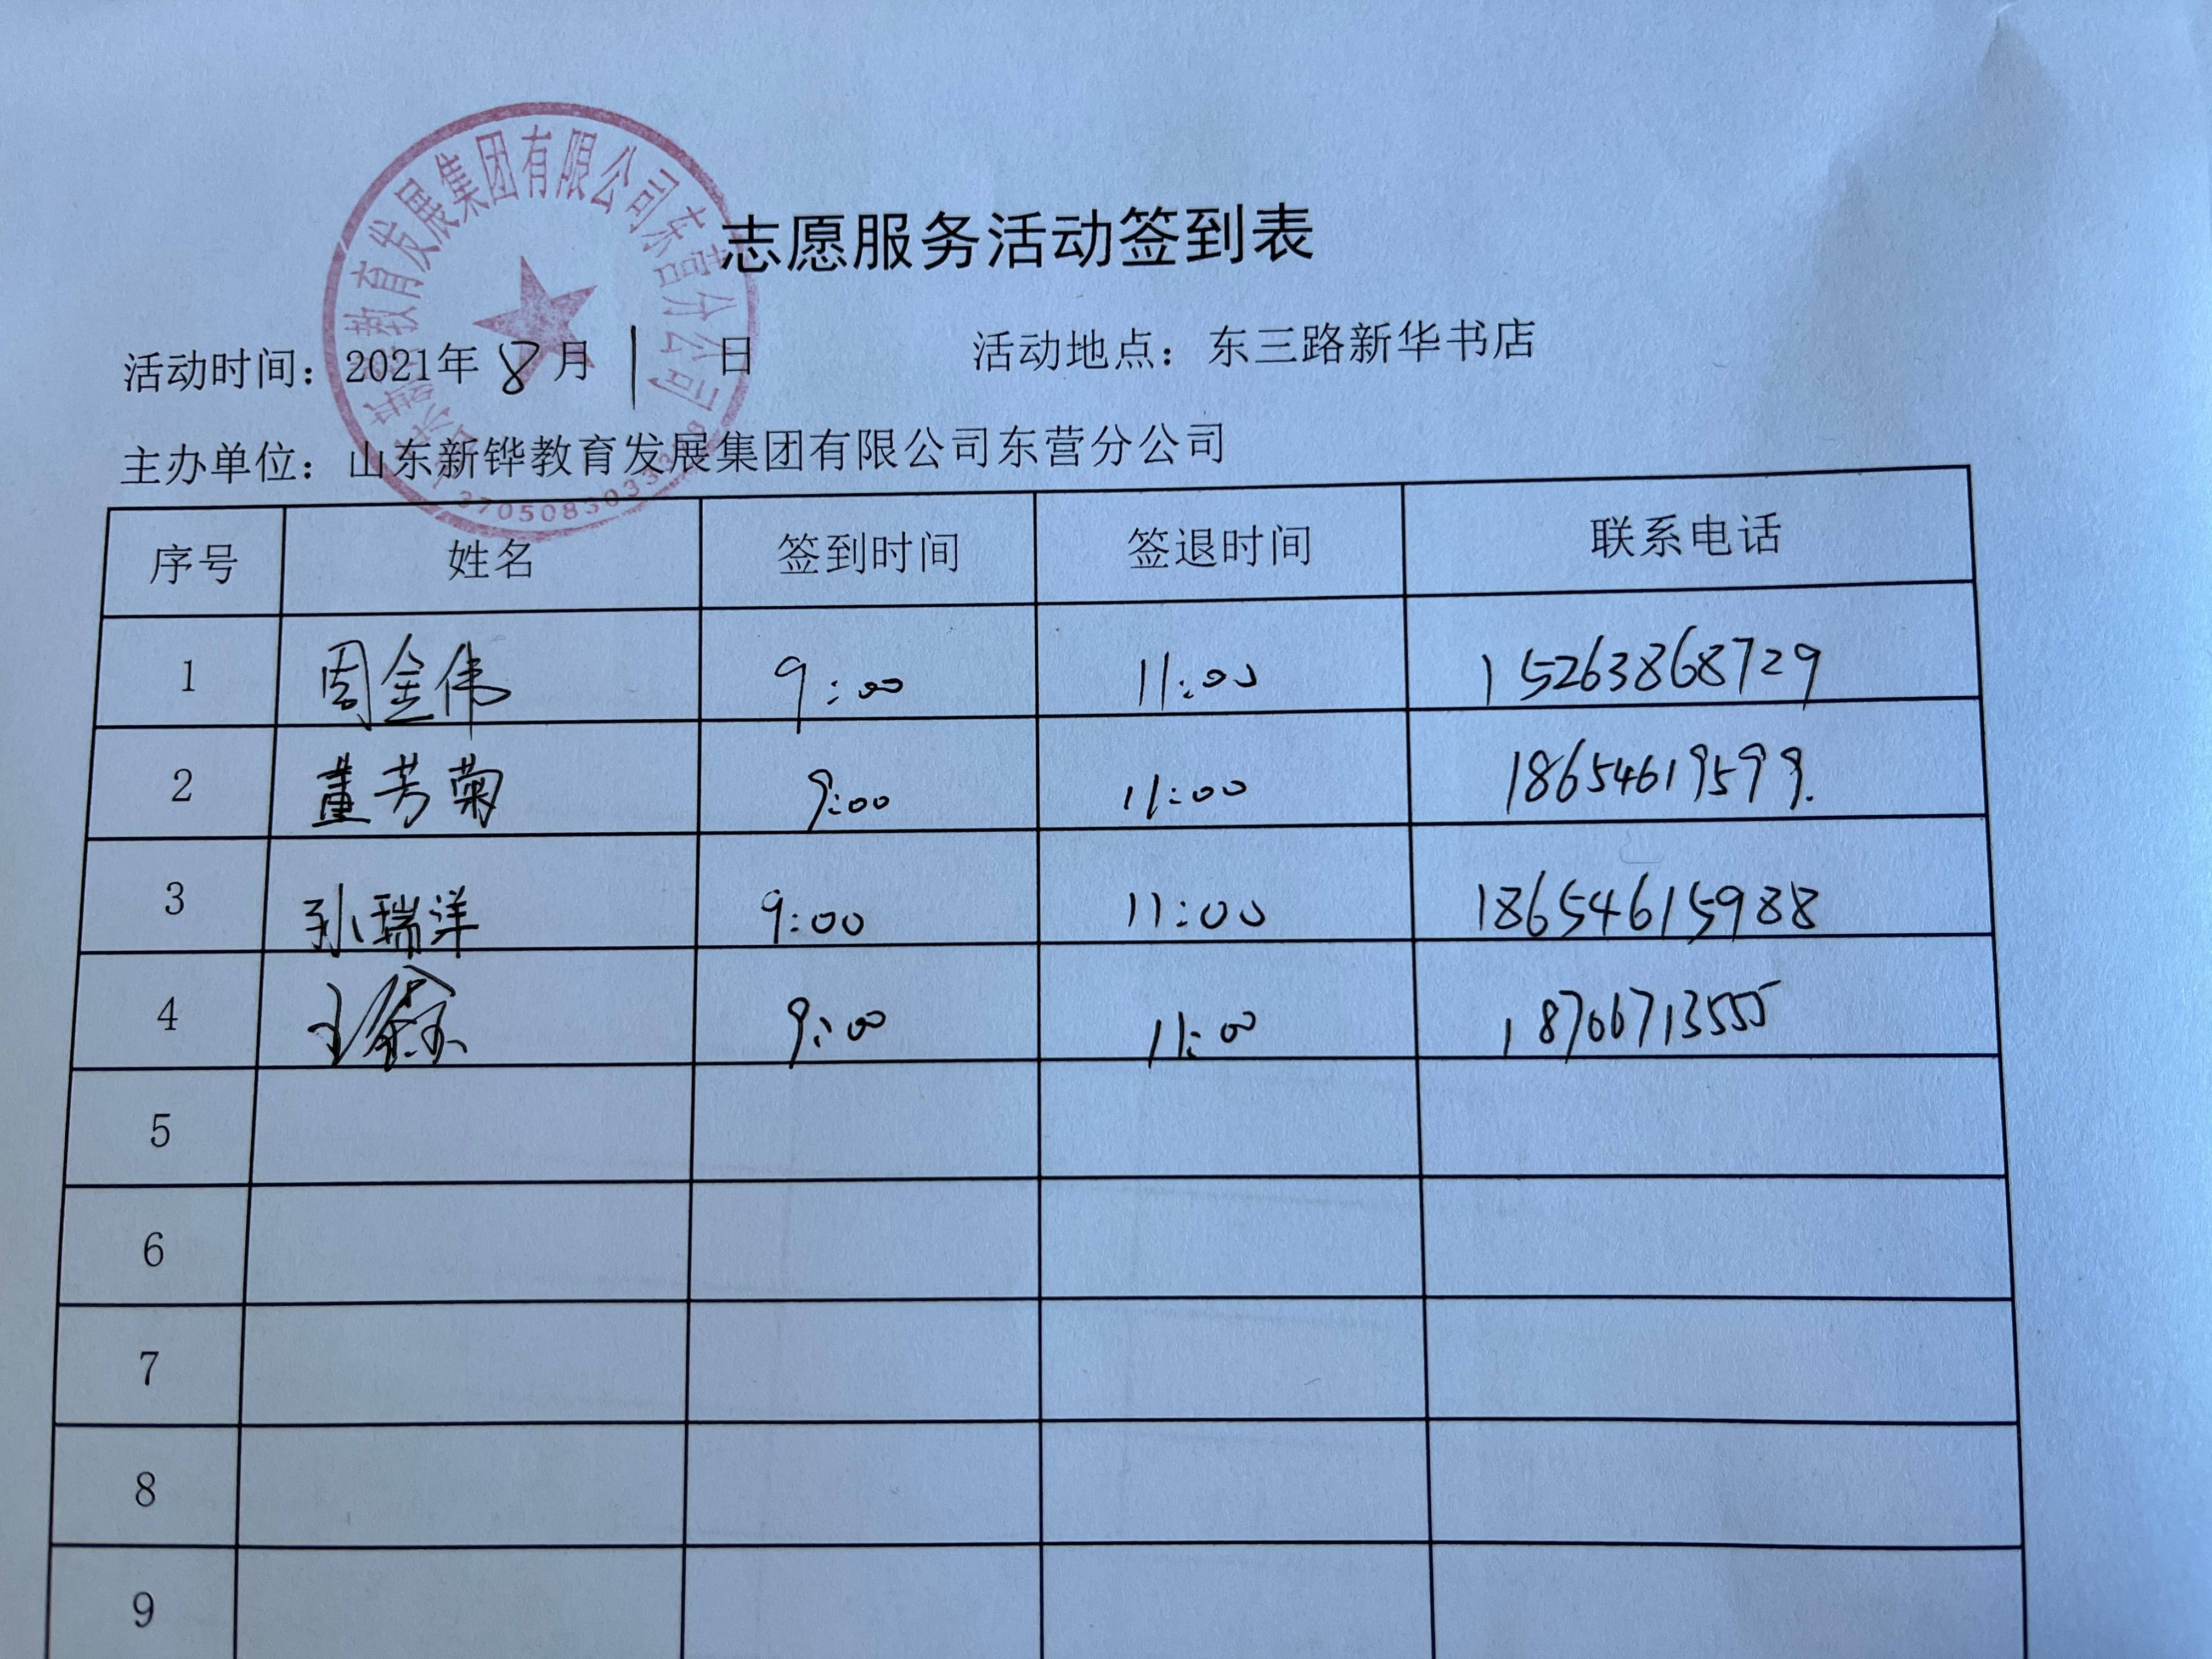 志愿服务活动签到表
活动时间：2021年 8月 1 日 活动地点：东三路新华书店
主办单位：山东新铧教育发展集团有限公司东营分公司
序号 姓名 签到时间 签退时间 联系电话
1 周金伟 9:00 11:00 15263868729
2 董芳菊 9:00 11:00 18654619599.
3 孙瑞洋 9:00 11:00 18654615988
4 9:00 11:00 18766713555
5
6
7
8
9
山东新铧教育发展集团有限公司东营分公司